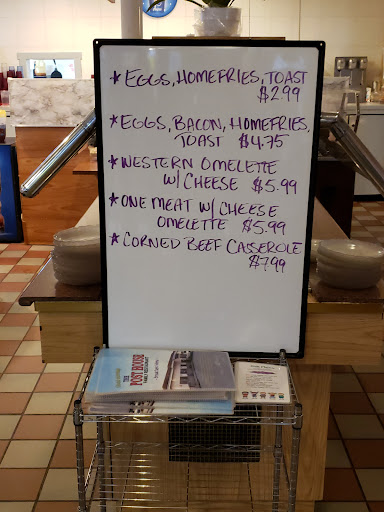 * EGGS, HOMEFRIES, TOAST
$2.99
* EGGS, BACON, HOMEFRIES,
TOAST $4.75
* WESTERN OMELETTE
W/ CHEESE $5.99
* ONE MEAT W/ CHEESE
OMELETTE $5.99
* CORNED BEEF CASSEROLE
$7.99
THE
POST HOUSE